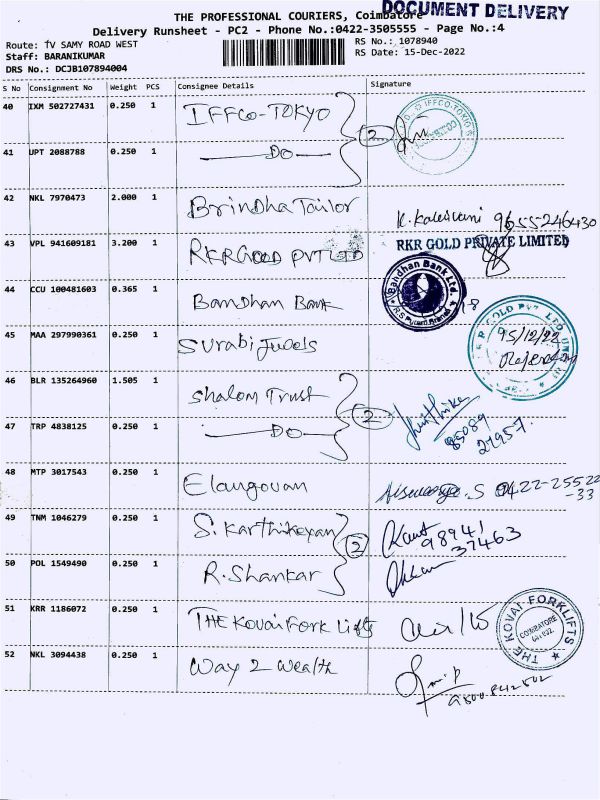 DOCUMENT DELIVERY
THE PROFESSIONAL COURIERS, Coimbatore
Delivery Runsheet - PC2 - Phone No.:0422-3505555 - Page No.:4
Route: TV SAMY ROAD WEST
RS No.: 1078940
Staff: BARANIKUMAR
RS Date: 15-Dec-2022
DRS No.: DCJB107894004
S No Consignment No Weight PCS Consignee Details Signature
40 IXM 502727431 0.250 1 IFFCO-TOKYO
2
41 UPT 2088788 0.250 1 DO
42 NKL 7970473 2.000 1 Brindha Tailor K. Kaleswani 9655246430
43 VPL 941609181 3.200 1 RKR GOLD PVT LTD RKR GOLD PRIVATE LIMITED
44 CCU 100481603 0.365 1 Bandhan Bank Bandhan Bank Ltd. R.S Puram Branch
45 MAA 297990361 0.250 1 Surabi Jewels
46 BLR 135264960 1.505 1 Shalom Trust
2
47 TRP 4838125 0.250 1 DO 85089
27957
48 MTP 3017543 0.250 1 Elangovan S 0422-25522
-33
49 TNM 1046279 0.250 1 S. Karthikeyan 98941
2 37463
50 POL 1549490 0.250 1 R. Shankar
51 KRR 1186072 0.250 1 THE Kovai Fork Lifts THE KOVAI FORKLIFTS COIMBATORE
52 NKL 3094438 0.250 1 Way 2 Wealth